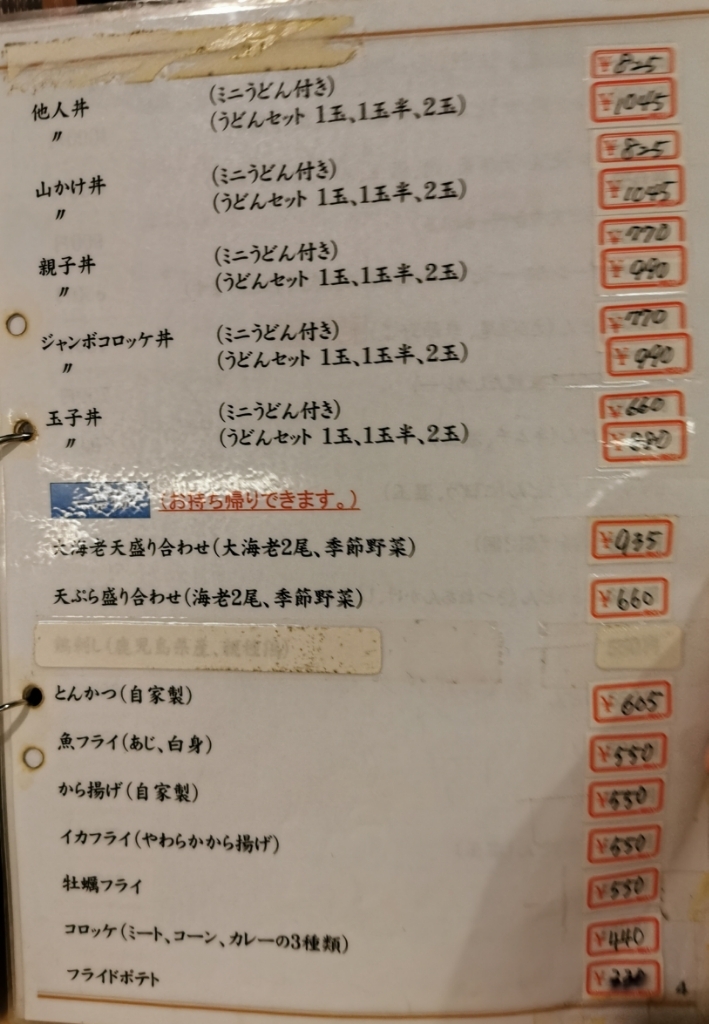 他人丼 (ミニうどん付き) ¥825
〃 (うどんセット 1玉、1玉半、2玉) ¥1045
山かけ丼 (ミニうどん付き) ¥825
〃 (うどんセット 1玉、1玉半、2玉) ¥1045
親子丼 (ミニうどん付き) ¥770
〃 (うどんセット 1玉、1玉半、2玉) ¥990
ジャンボコロッケ丼 (ミニうどん付き) ¥770
〃 (うどんセット 1玉、1玉半、2玉) ¥990
玉子丼 (ミニうどん付き) ¥660
〃 (うどんセット 1玉、1玉半、2玉) ¥880
(お持ち帰りできます。)
大海老天盛り合わせ(大海老2尾、季節野菜) ¥935
天ぷら盛り合わせ(海老2尾、季節野菜) ¥660
とんかつ(自家製) ¥605
魚フライ(あじ、白身) ¥550
から揚げ(自家製) ¥550
イカフライ(やわらかから揚げ) ¥550
牡蠣フライ ¥550
コロッケ(ミート、コーン、カレーの3種類) ¥440
フライドポテト ¥330
4